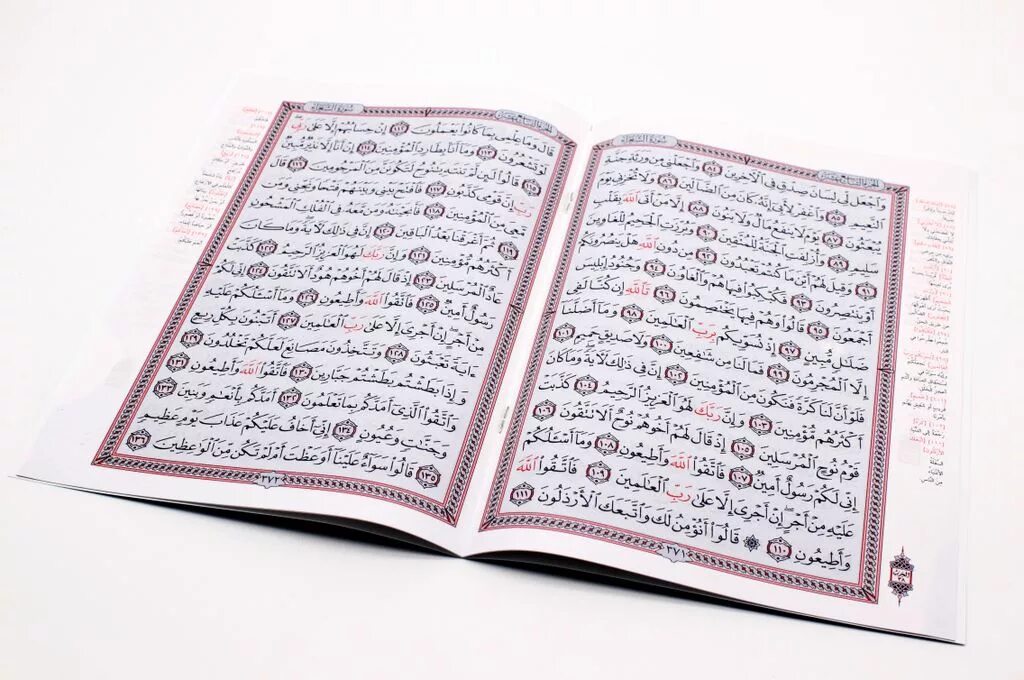 سُورَةُ الشُّعَرَاءِ
الجزء التاسع عشر
وَاجْعَل لِّي لِسَانَ صِدْقٍ فِي الْآخِرِينَ ٨٤ وَاجْعَلْنِي مِن وَرَثَةِ جَنَّةِ
النَّعِيمِ ٨٥ وَاغْفِرْ لِأَبِي إِنَّهُ كَانَ مِنَ الضَّالِّينَ ٨٦ وَلَا تُخْزِنِي يَوْمَ
يُبْعَثُونَ ٨٧ يَوْمَ لَا يَنفَعُ مَالٌ وَلَا بَنُونَ ٨٨ إِلَّا مَنْ أَتَى اللَّهَ بِقَلْبٍ
سَلِيمٍ ٨٩ وَأُزْلِفَتِ الْجَنَّةُ لِلْمُتَّقِينَ ٩٠ وَبُرِّزَتِ الْجَحِيمُ لِلْغَاوِينَ
٩١ وَقِيلَ لَهُمْ أَيْنَ مَا كُنتُمْ تَعْبُدُونَ ٩٢ مِن دُونِ اللَّهِ هَلْ يَنصُرُونَكُمْ
أَوْ يَنتَصِرُونَ ٩٣ فَكُبْكِبُوا فِيهَا هُمْ وَالْغَاوُونَ ٩٤ وَجُنُودُ إِبْلِيسَ
أَجْمَعُونَ ٩٥ قَالُوا وَهُمْ فِيهَا يَخْتَصِمُونَ ٩٦ تَاللَّهِ إِن كُنَّا لَفِي
ضَلَالٍ مُّبِينٍ ٩٧ إِذْ نُسَوِّيكُم بِرَبِّ الْعَالَمِينَ ٩٨ وَمَا أَضَلَّنَا
إِلَّا الْمُجْرِمُونَ ٩٩ فَمَا لَنَا مِن شَافِعِينَ ١٠٠ وَلَا صَدِيقٍ حَمِيمٍ ١٠١
فَلَوْ أَنَّ لَنَا كَرَّةً فَنَكُونَ مِنَ الْمُؤْمِنِينَ ١٠٢ إِنَّ فِي ذَلِكَ لَآيَةً وَمَا كَانَ
أَكْثَرُهُم مُّؤْمِنِينَ ١٠٣ وَإِنَّ رَبَّكَ لَهُوَ الْعَزِيزُ الرَّحِيمُ ١٠٤ كَذَّبَتْ
قَوْمُ نُوحٍ الْمُرْسَلِينَ ١٠٥ إِذْ قَالَ لَهُمْ أَخُوهُمْ نُوحٌ أَلَا تَتَّقُونَ ١٠٦
إِنِّي لَكُمْ رَسُولٌ أَمِينٌ ١٠٧ فَاتَّقُوا اللَّهَ وَأَطِيعُونِ ١٠٨ وَمَا أَسْأَلُكُمْ
عَلَيْهِ مِنْ أَجْرٍ إِنْ أَجْرِيَ إِلَّا عَلَى رَبِّ الْعَالَمِينَ ١٠٩ فَاتَّقُوا اللَّهَ
وَأَطِيعُونِ ١١٠ ۞ قَالُوا أَنُؤْمِنُ لَكَ وَاتَّبَعَكَ الْأَرْذَلُونَ ١١١
٣٧١
سُورَةُ الشُّعَرَاءِ
الجزء التاسع عشر
قَالَ وَمَا عِلْمِي بِمَا كَانُوا يَعْمَلُونَ ١١٢ إِنْ حِسَابُهُمْ إِلَّا عَلَى رَبِّي
لَوْ تَشْعُرُونَ ١١٣ وَمَا أَنَا بِطَارِدِ الْمُؤْمِنِينَ ١١٤ إِنْ أَنَا إِلَّا نَذِيرٌ مُّبِينٌ
١١٥ قَالُوا لَئِن لَّمْ تَنتَهِ يَا نُوحُ لَتَكُونَنَّ مِنَ الْمَرْجُومِينَ ١١٦ قَالَ
رَبِّ إِنَّ قَوْمِي كَذَّبُونِ ١١٧ فَافْتَحْ بَيْنِي وَبَيْنَهُمْ فَتْحًا وَنَجِّنِي وَمَن
مَّعِيَ مِنَ الْمُؤْمِنِينَ ١١٨ فَأَنجَيْنَاهُ وَمَن مَّعَهُ فِي الْفُلْكِ الْمَشْحُونِ
١١٩ ثُمَّ أَغْرَقْنَا بَعْدُ الْبَاقِينَ ١٢٠ إِنَّ فِي ذَلِكَ لَآيَةً وَمَا كَانَ
أَكْثَرُهُم مُّؤْمِنِينَ ١٢١ وَإِنَّ رَبَّكَ لَهُوَ الْعَزِيزُ الرَّحِيمُ ١٢٢ كَذَّبَتْ
عَادٌ الْمُرْسَلِينَ ١٢٣ إِذْ قَالَ لَهُمْ أَخُوهُمْ هُودٌ أَلَا تَتَّقُونَ ١٢٤ إِنِّي لَكُمْ
رَسُولٌ أَمِينٌ ١٢٥ فَاتَّقُوا اللَّهَ وَأَطِيعُونِ ١٢٦ وَمَا أَسْأَلُكُمْ عَلَيْهِ
مِنْ أَجْرٍ إِنْ أَجْرِيَ إِلَّا عَلَى رَبِّ الْعَالَمِينَ ١٢٧ أَتَبْنُونَ بِكُلِّ رِيعٍ
ءَايَةً تَعْبَثُونَ ١٢٨ وَتَتَّخِذُونَ مَصَانِعَ لَعَلَّكُمْ تَخْلُدُونَ ١٢٩
وَإِذَا بَطَشْتُم بَطَشْتُمْ جَبَّارِينَ ١٣٠ فَاتَّقُوا اللَّهَ وَأَطِيعُونِ ١٣١
وَاتَّقُوا الَّذِي أَمَدَّكُم بِمَا تَعْلَمُونَ ١٣٢ أَمَدَّكُم بِأَنْعَامٍ وَبَنِينَ ١٣٣
وَجَنَّاتٍ وَعُيُونٍ ١٣٤ إِنِّي أَخَافُ عَلَيْكُمْ عَذَابَ يَوْمٍ عَظِيمٍ
١٣٥ قَالُوا سَوَاءٌ عَلَيْنَا أَوَعَظْتَ أَمْ لَمْ تَكُن مِّنَ الْوَاعِظِينَ ١٣٦
٣٧٢